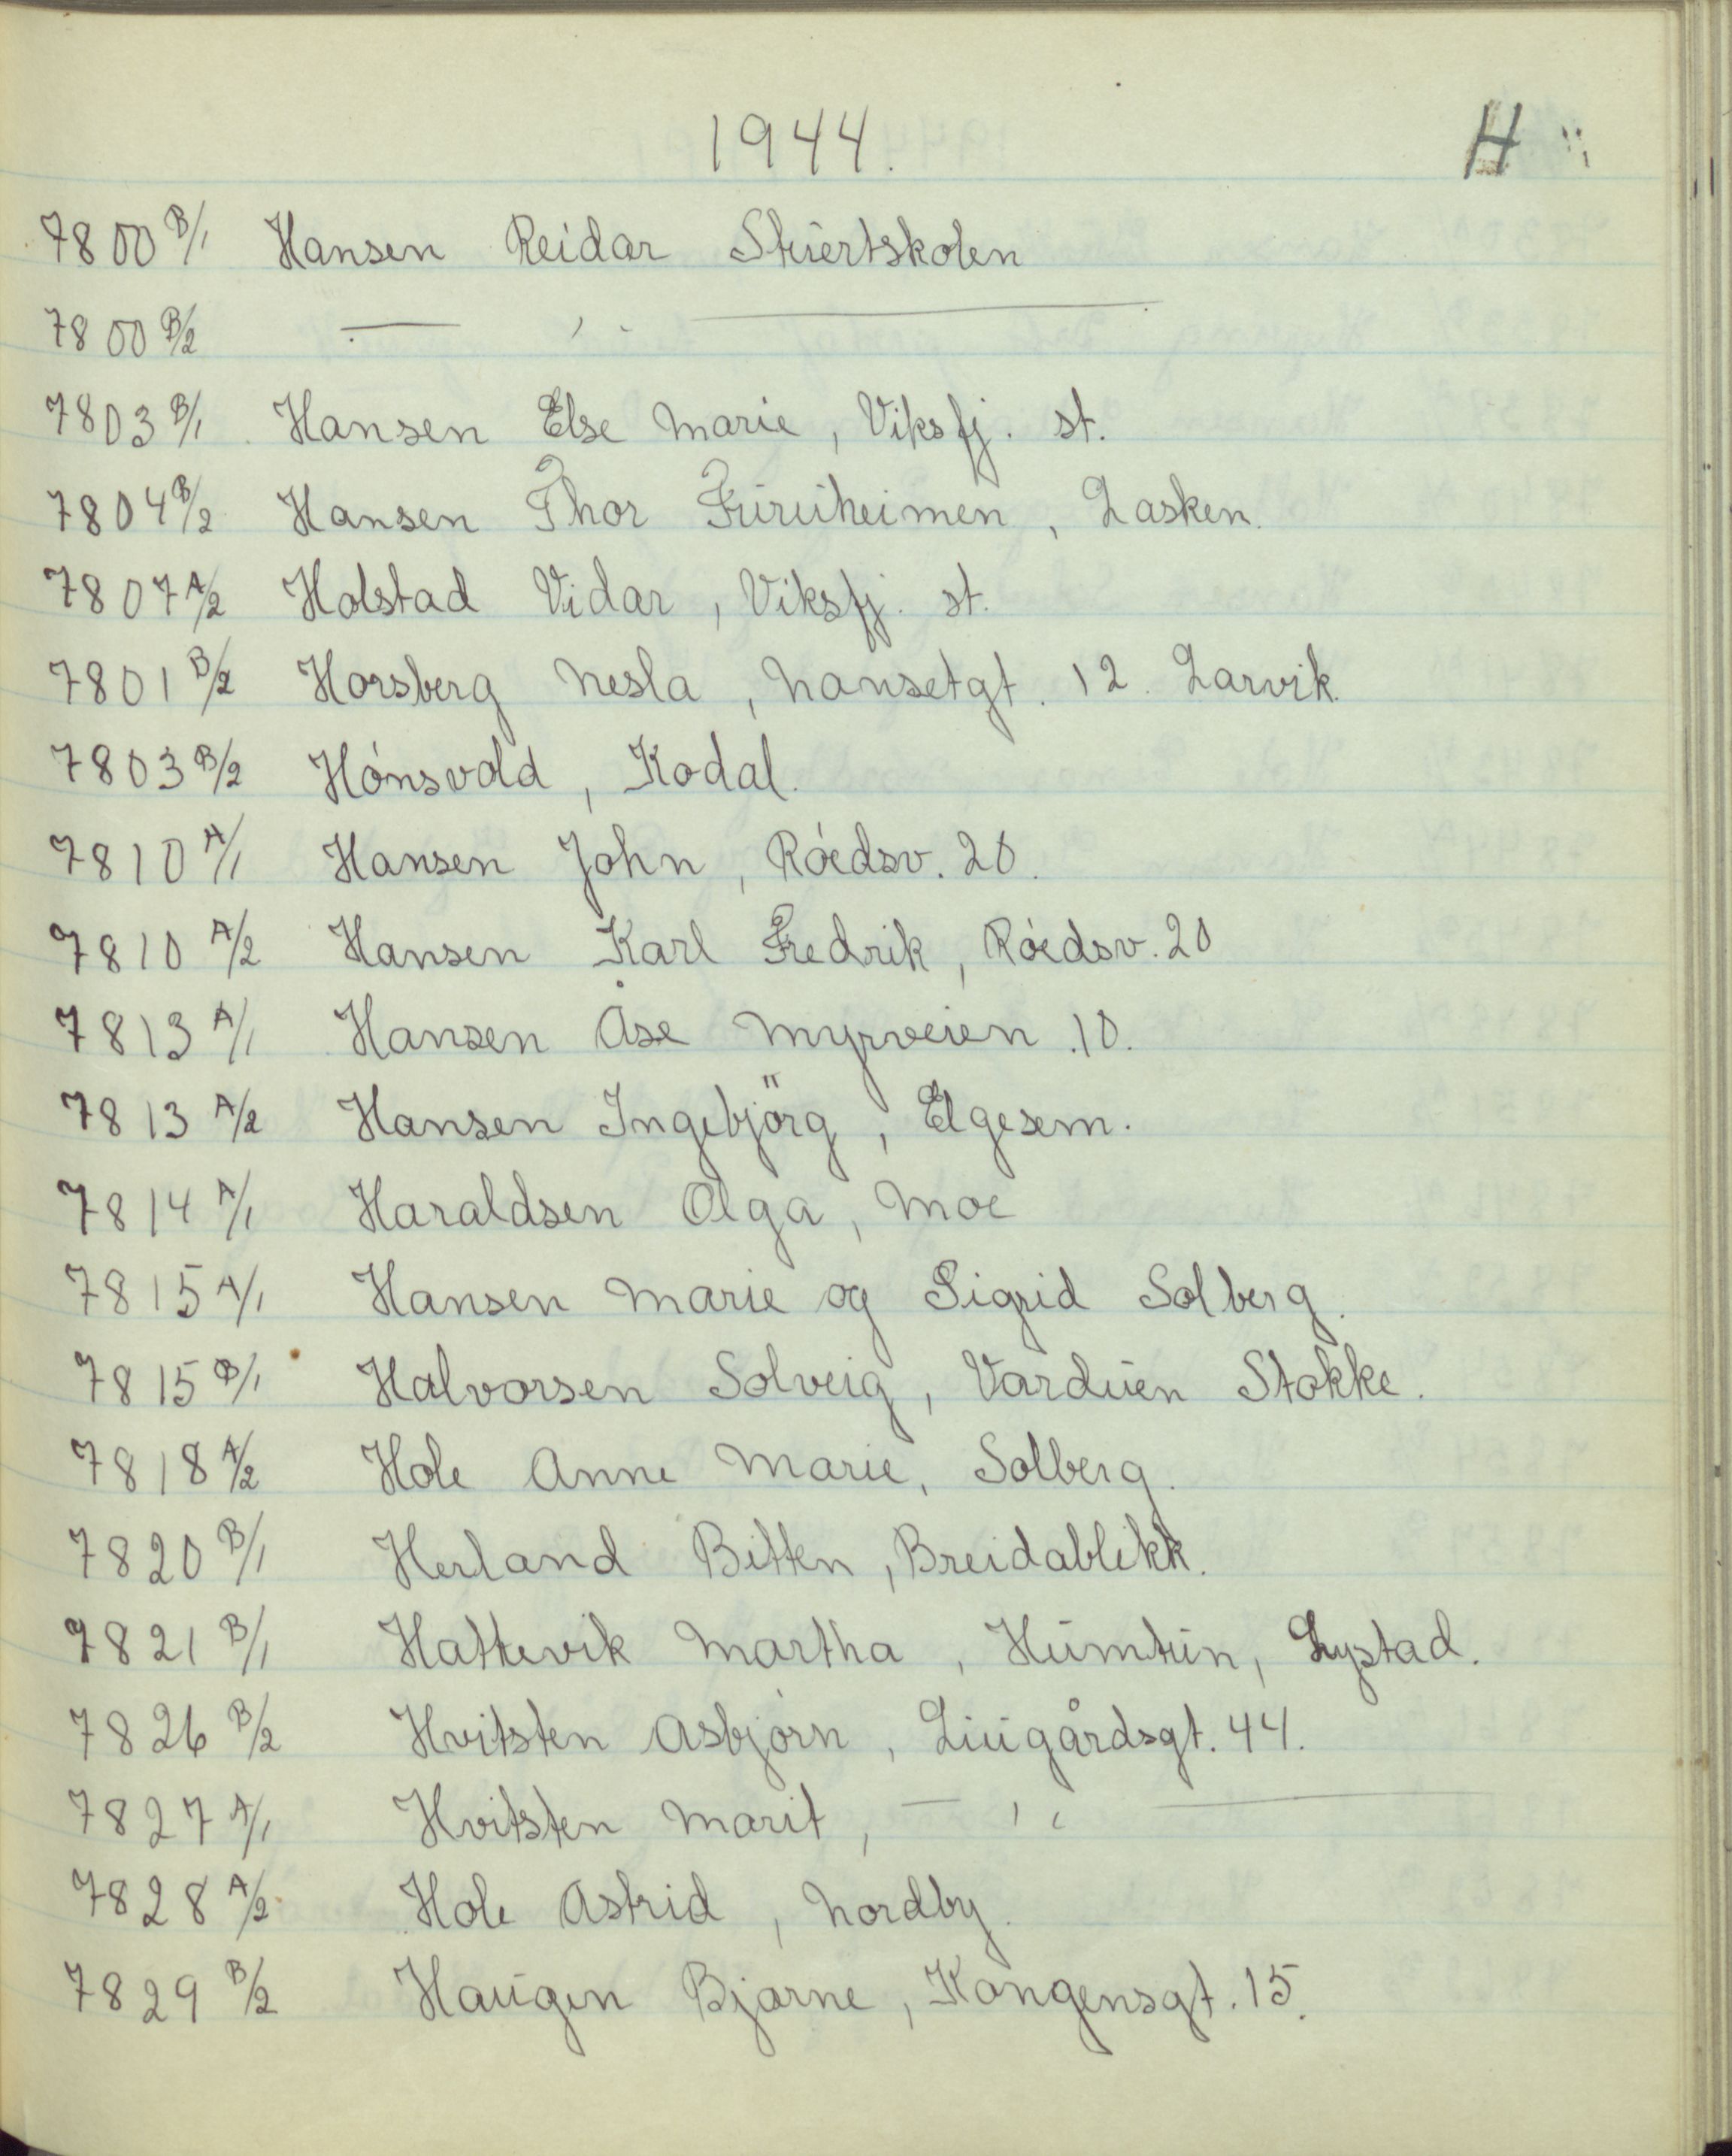 1944. H
7800 B/1 Hansen Reidar Stuertskolen
7800 B/2 — ,, —
7803 B/1 Hansen Else Marie, Viksfj. st.
7804 B/2 Hansen Thor Furuheimen, Lasken.
7807 A/2 Holstad Vidar, Viksfj. st.
7801 B/2 Horsberg Nesla, Nansetgt. 12. Larvik.
7803 B/2 Hónsvold, Kodal.
7810 A/1 Hansen John, Róedsv. 20.
7810 A/2 Hansen Karl Fredrik, Róedsv. 20
7813 A/1 Hansen Åse Myrveien 10.
7813 A/2 Hansen Ingebjörg, Elgesem.
7814 A/1 Haraldsen Olga, Moe
7815 A/1 Hansen Marie og Sigrid Solberg.
7815 B/1 Halvorsen Solveig, Varduen Stokke.
7818 A/2 Hole Anne Marie, Solberg.
7820 B/1 Herland Bitten, Breidablikk.
7821 B/1 Hattevik Martha, Humtun, Lystad.
7826 B/2 Hvitsten Asbjórn, Liugårdsgt. 44.
7827 A/1 Hvitsten Marit, — ,, —
7828 A/2 Hole Astrid, Nordby.
7829 B/2 Haugen Bjarne, Kongensgt. 15.